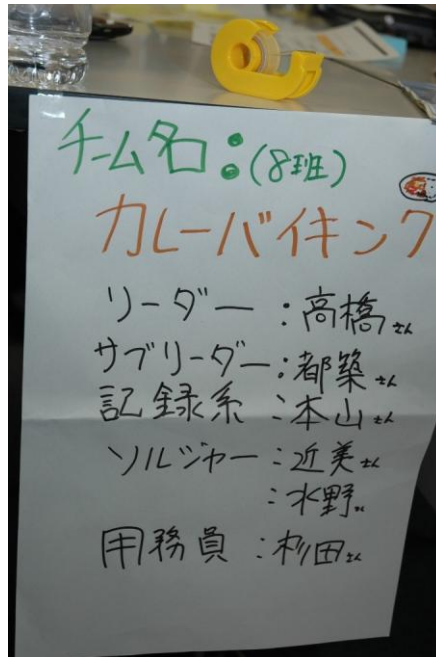 チーム名:(8班)
カレーバイキング
リーダー:高橋さん
サブリーダー:都築さん
記録系:本山さん
ソルジャー:近美さん
:水野さん
用務員:杉田さん